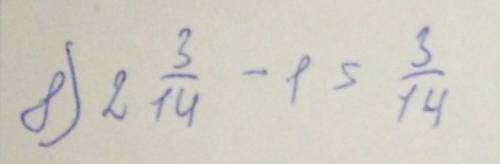 8) 2 3/14 - 1 = 3/14